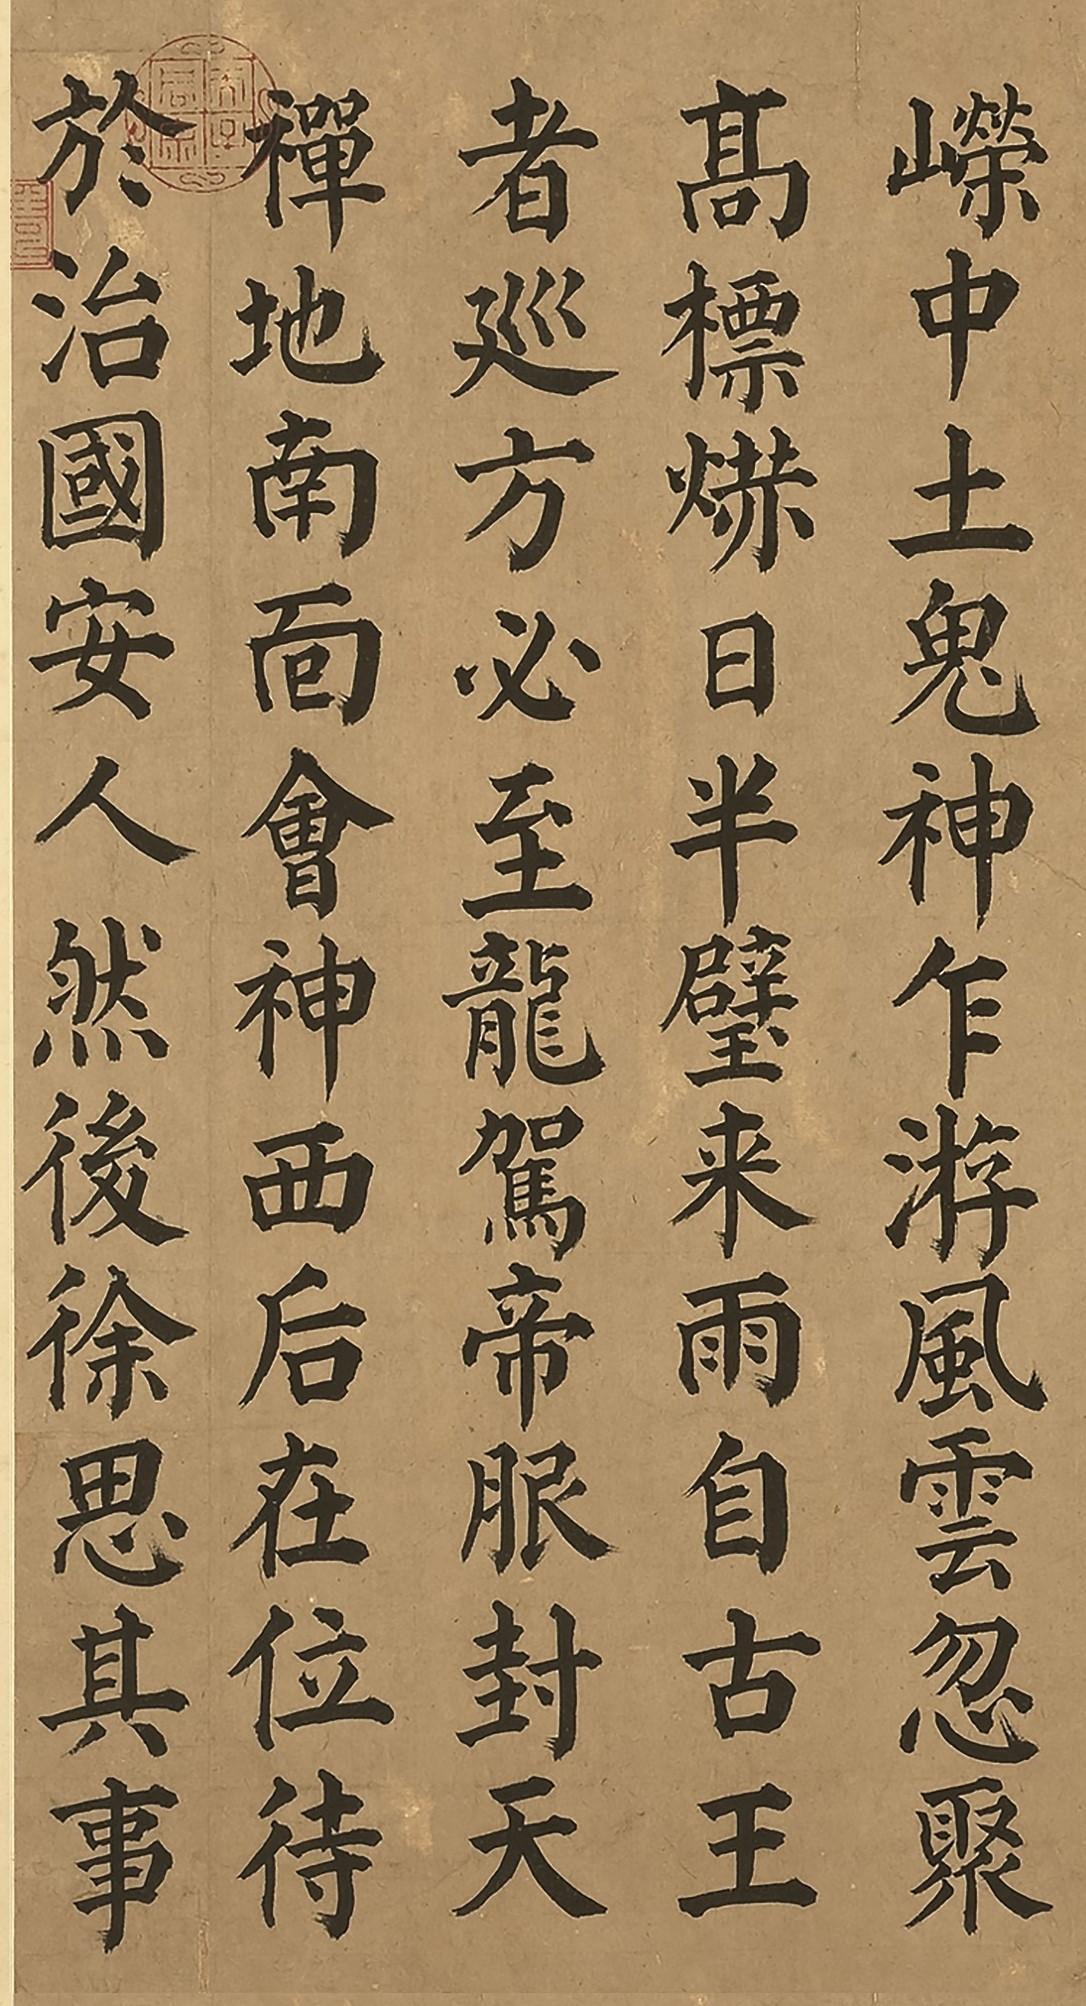 嶸中土鬼神乍游風雲忽聚
髙標焃日半璧来雨自古王
者廵方必至龍駕帝服封天
禪地南面會神西后在位待
於治國安人然後徐思其事